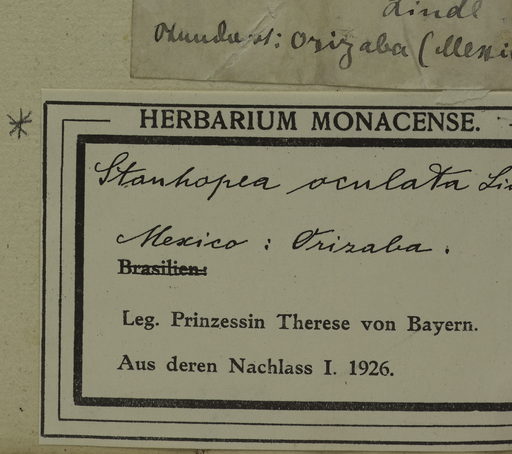 Lindl
Fundort: Orizaba (Mexi
*
HERBARIUM MONACENSE.
Stanhopea oculata Lin
Mexico : Orizaba .
Brasilien:
Leg. Prinzessin Therese von Bayern.
Aus deren Nachlass I. 1926.